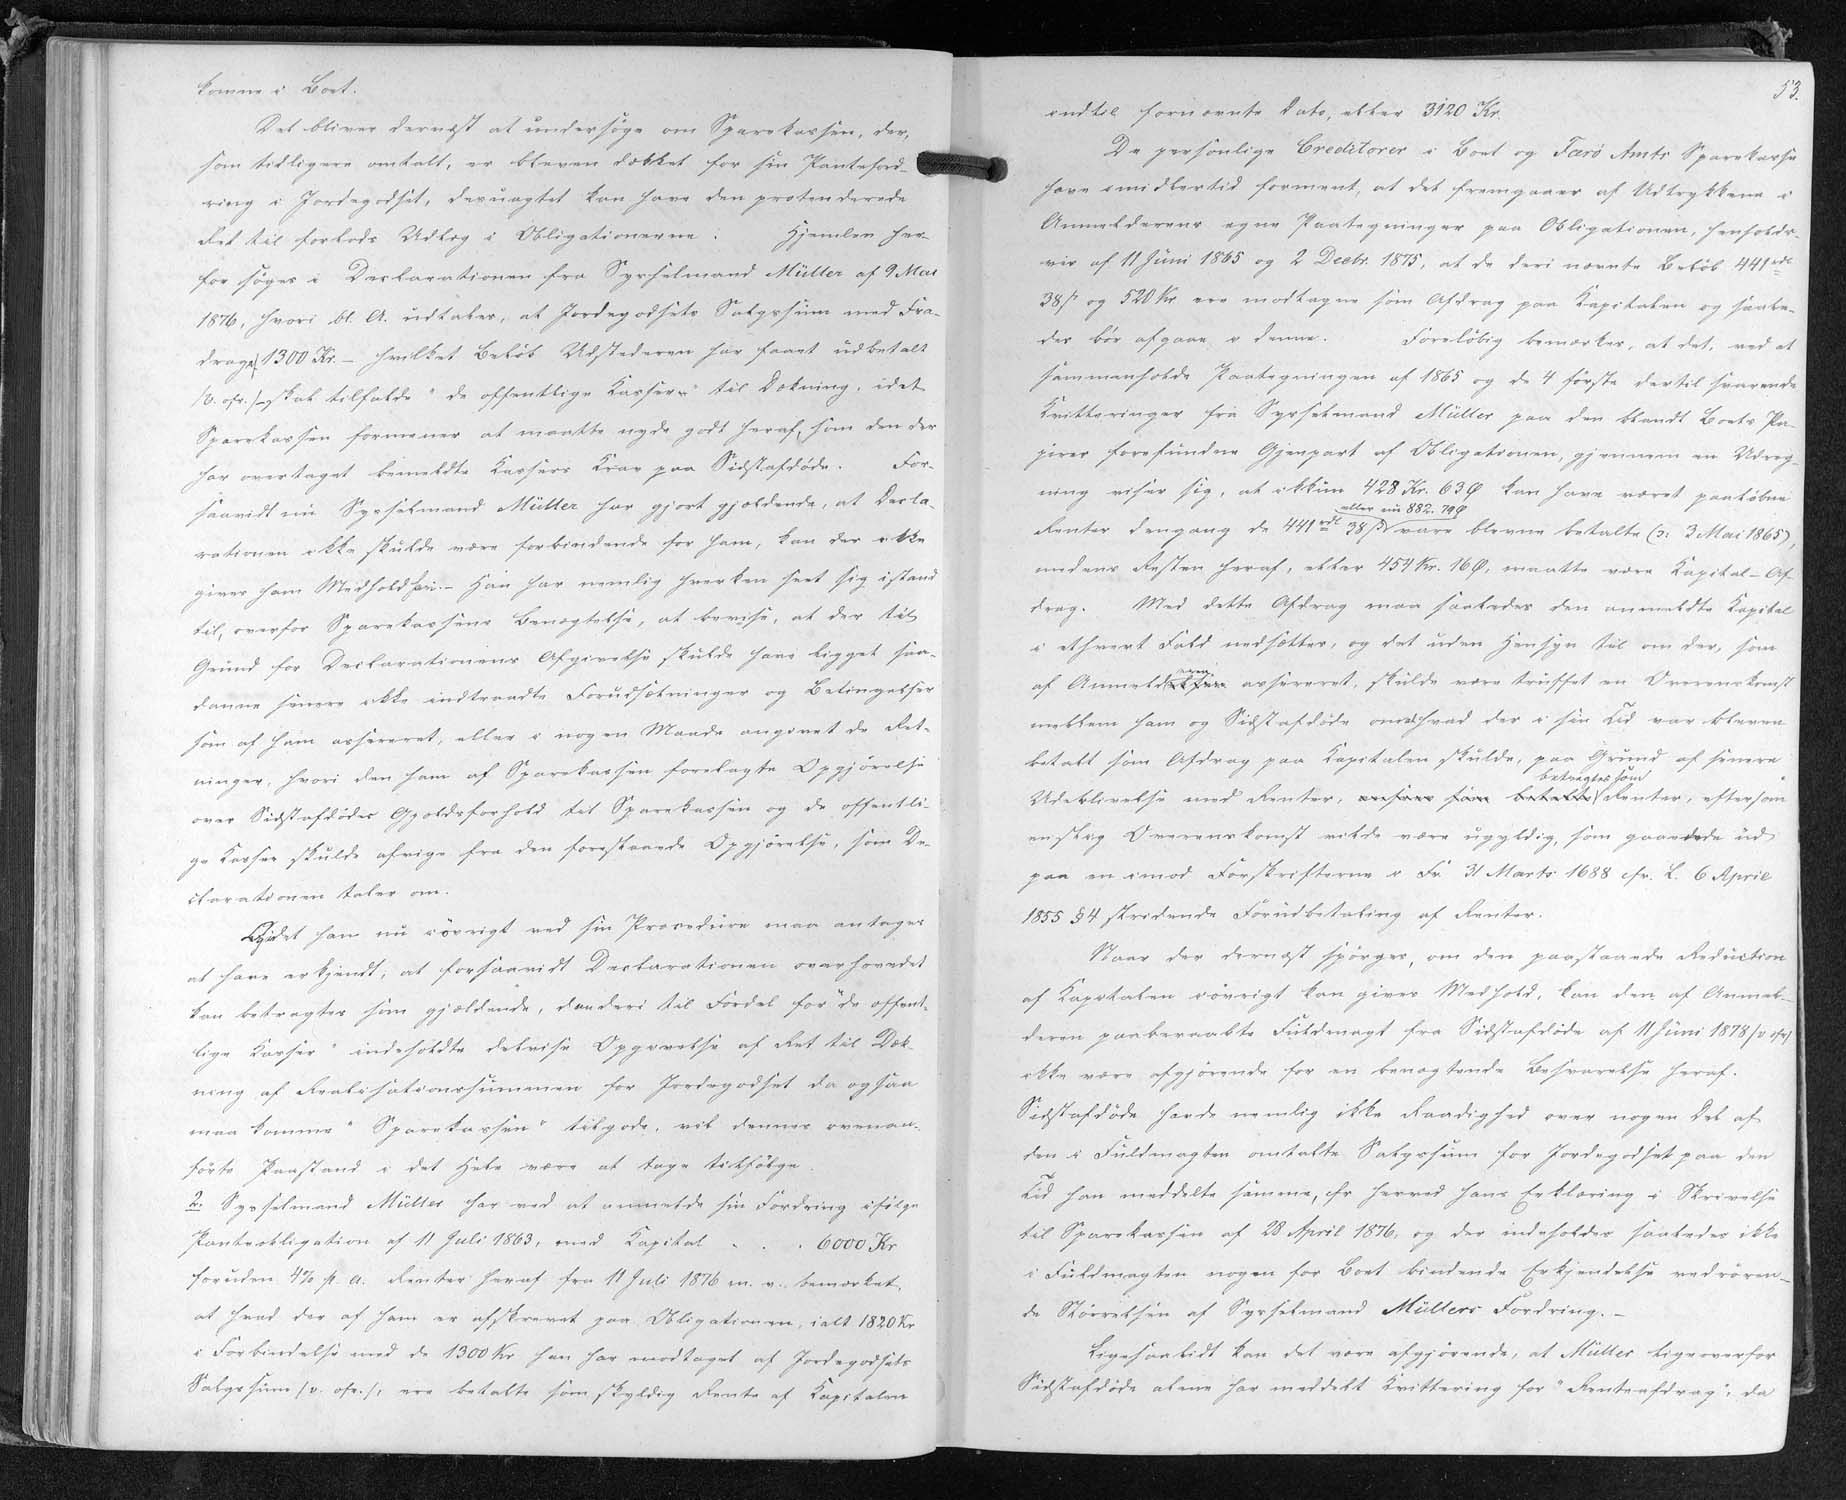 komme i Boet.
Det bliver dernæst at undersøge om Sparekassen, der,
som tidligere omtalt, er bleven dækket for sin Panteford-
ring i Jordegodset, desuagtet kan have den protenderede
Ret til forlods Udlæg i Obligationerne. Hjemlen her-
for søges i Declarationen fra Sysselmand Müller af 9 Mai
1876, hvori bl. A. udtales, at Jordegodsets Salgssum med Fra-
drag 1300 Kr. – hvilket Beløb Udstederen har faaet udbetalt
/v. ofr./ – skal tilfalde "de offentlige Kasser" til Dækning, idet
Sparekassen formener at maatte nyde godt heraf, som den der
har overtaget bemeldte Kassers Krav paa Sidstafdøde. For-
saavidt nu Sysselmand Müller har gjort gjældende, at Decla-
rationen ikke skulde være forbindende for ham, kan der ikke
gives ham Medhold heri. – Han har nemlig hverken seet sig istand
til, overfor Sparekassens Benægtelse, at bevise, at der til
Grund for Declarationens Afgivelse skulde have ligget saa-
danne senere ikke indtraadte Forudsætninger og Betingelser
som af ham assereret, eller i nogen Maade angivet de Ret-
ninger, hvori den ham af Sparekassen forelagte Opgjørelse
over Sidstafdødes Gjældsforhold til Sparekassen og de offentli-
ge Kasser skulde afvige fra den forestaaende Opgjørelse, som De-
clarationen taler om.
Idet han nu iøvrigt ved sin Procedure maa antages
at have erkjendt, at forsaavidt Declarationen overhovedet
kan betragtes som gjældende, den deri til Fordel for "de offent-
lige Kasser" indeholdte delvise Opgivelse af Ret til Dæk-
ning af Realisationssummen for Jordegodset da ogsaa
maa komme "Sparekassen" tilgode, vil dennes ovenan-
førte Paastand i det Hele være at tage tilfølge.
2. Sysselmand Müller har ved at anmelde sin Fordring ifølge
Panteobligation af 11 Juli 1863, med Kapital . . . 6000 Kr
foruden 4% p. a. Renter heraf fra 11 Juli 1876 m. v. bemærket,
at hvad der af ham er afskrevet paa Obligationen, ialt 1820 Kr
i Forbindelse med de 1300 Kr han har modtaget af Jordegodsets
Salgssum /v. ofr./, ere betalte som skyldig Rente af Kapitalen
53.
indtil fornævnte Dato, eller 3120 Kr.
De personlige Creditorer i Boet og Færø Amts Sparekasse
have imidlertid forment, at det fremgaaer af Udtrykkene i
Anmelderens egne Paategninger paa Obligationen, henholds-
vis af 11 Juni 1865 og 2 Decbr. 1875, at de deri nævnte Beløb 441 rdl
38 ß og 520 Kr ere modtagne som Afdrag paa Kapitalen og saale-
des bør afgaae i denne. Foreløbig bemærkes, at det, ved at
sammenholde Paategningen af 1865 og de 4 første dertil svarende
Kvitteringer fra Sysselmand Müller paa den blandt Boets Pa-
pirer forefundne Gjenpart af Obligationen, gjennem en Udreg-
ning viser sig, at ikkun 428 Kr. 63 Ø kan have været paaløbne
eller nu 882. 79 Ø
Renter dengang de 441 rdl 38 ß vare blevne betalte (ɔ: 3 Mai 1865),
medens Resten heraf, eller 454 Kr. 16 Ø, maatte være Kapital-Af-
drag. Med dette Afdrag maa saaledes den anmeldte Kapital
i ethvert Fald nedsættes, og det uden Hensyn til om der, som
af Anmelderen assereret, skulde være truffet en Overenskomst
mellem ham og Sidstafdøde om at hvad der i sin Tid var bleven
betalt som Afdrag paa Kapitalen skulde, paa Grund af senere
betragtes som
Udeblivelse med Renter, ansees som betalte Renter, eftersom
en slig Overenskomst vilde være ugyldig, som gaaende ud
paa en imod Forskrifterne i Fr. 31 Marts 1688 cfr. L. 6 April
1855 § 4 stridende Forudbetaling af Renter.
Naar der dernæst spørges, om den paastaaede Reduction
af Kapitalen iøvrigt kan gives Medhold, kan den af Anmel-
deren paaberaabte Fuldmagt fra Sidstafdøde af 11 Juni 1878 /v. ofr/
ikke være afgjørende for en benægtende Besvarelse heraf.
Sidstafdøde havde nemlig ikke Raadighed over nogen Del af
den i Fuldmagten omtalte Salgssum for Jordegodset paa den
Tid han meddelte samme, cfr herved hans Erklæring i Skrivelse
til Sparekassen af 28 April 1876, og der indeholdes saaledes ikke
i Fuldmagten nogen for Boet bindende Erkjendelse vedrøren-
de Størrelsen af Sysselmand Müllers Fordring. –
Ligesaalidt kan det være afgjørende, at Müller ligeoverfor
Sidstafdøde alene har meddelt Kvittering for "Renteafdrag", da